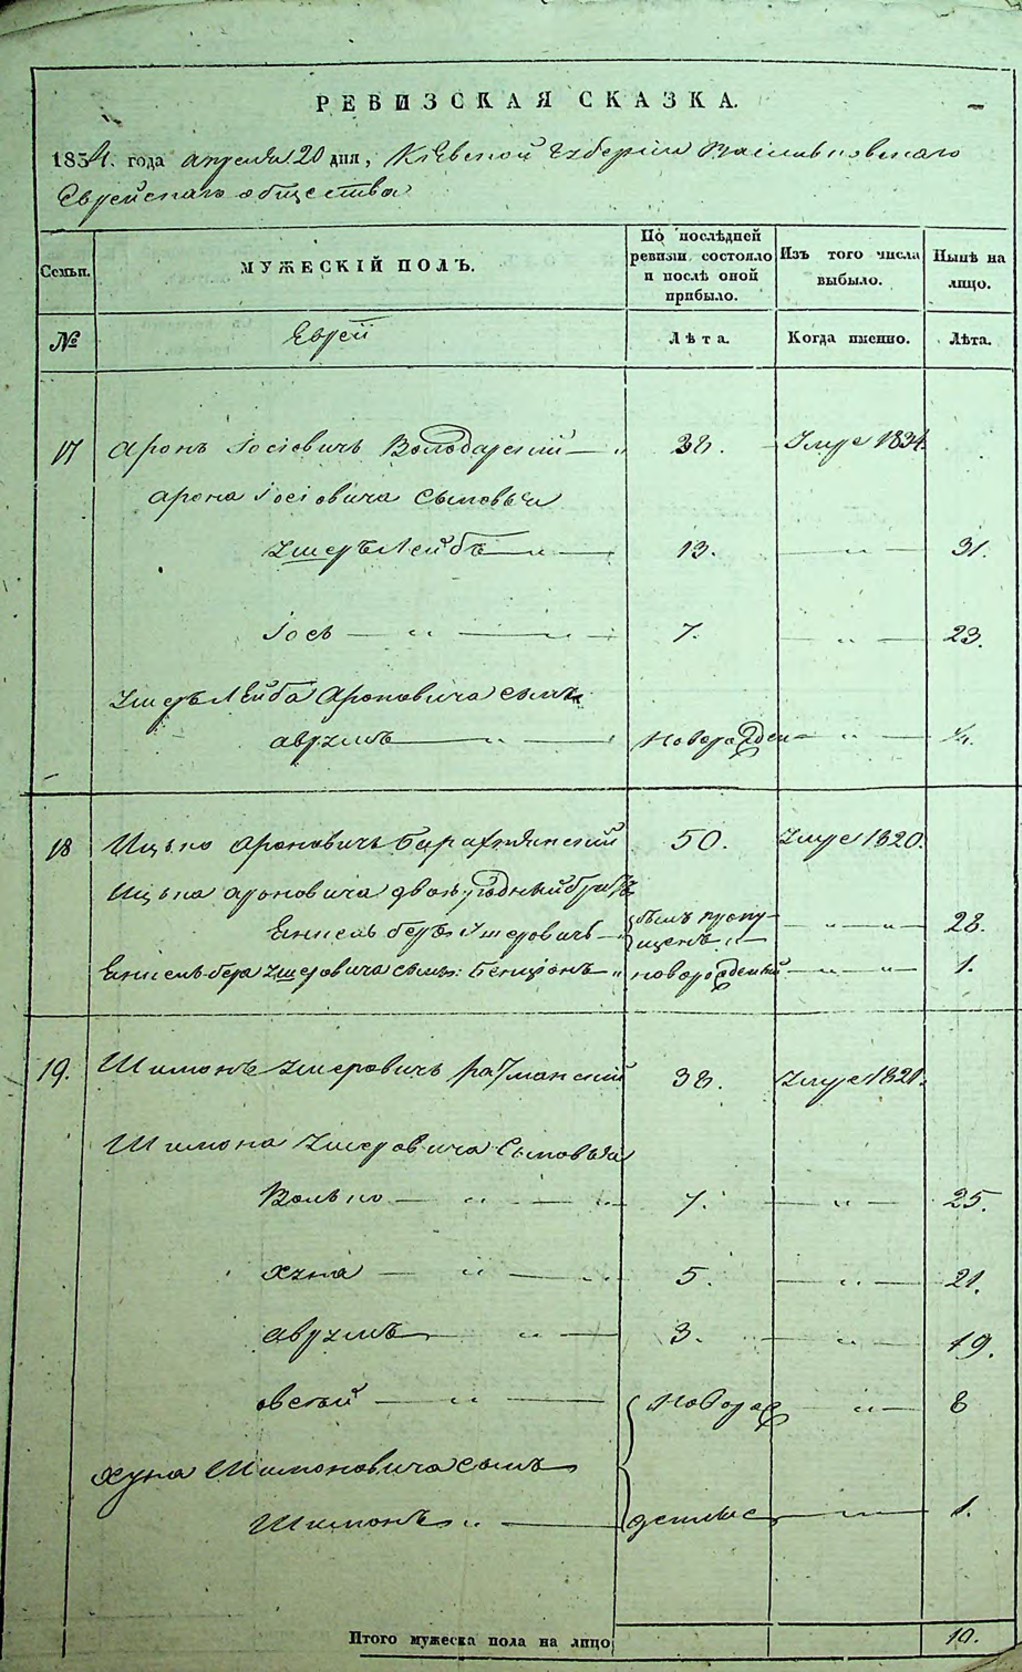 РЕВИЗСКАЯ СКАЗКА.
1834. года апреля 20 дня, Кіевской Губерніи Васильковскаго
Еврейскаго общества
Семьи. МУЖЕСКІЙ ПОЛЪ. По послѣдней ревизіи состояло и послѣ оной прибыло. Изъ того числа выбыло. Нынѣ на лицо.
№ Евреи Лѣта. Когда именно. Лѣта.
17 Аронъ Іосіовичъ Володарскій — " 38. Умре 1834.
Арона Іосіовича Сыновья
УшерЪ Лейбъ — " — 13. — " — 31.
Іось — " — " — 7. — " — 23.
УшерЪ Лейба Ароновича сынъ
Аврумъ — " — Новорожден — " — ¼.
18 Ицько Ароновичъ Барахтянскій 50. Умре 1820.
Ицька Ароновича двоюродный братъ
беръ Ушеровичъ — былъ пропущенъ " — — " — " — 28.
бера Ушеровича сынъ: Бенціонъ — " новорожденный — " — " 1.
19. Шимонъ Ушеровичъ 38. Умре 1821.
Шимона Ушеровича Сыновья
Волько — " — " — 7. — " — 25.
Хуна — " — " 5. — " — 21.
Аврумъ — " — 3. — " — 19.
Овсей — " — Новорож — " — 8
Хуна Шимоновича сынъ
Шимонъ " — денные — 1.
Итого мужеска пола на лицо 10.